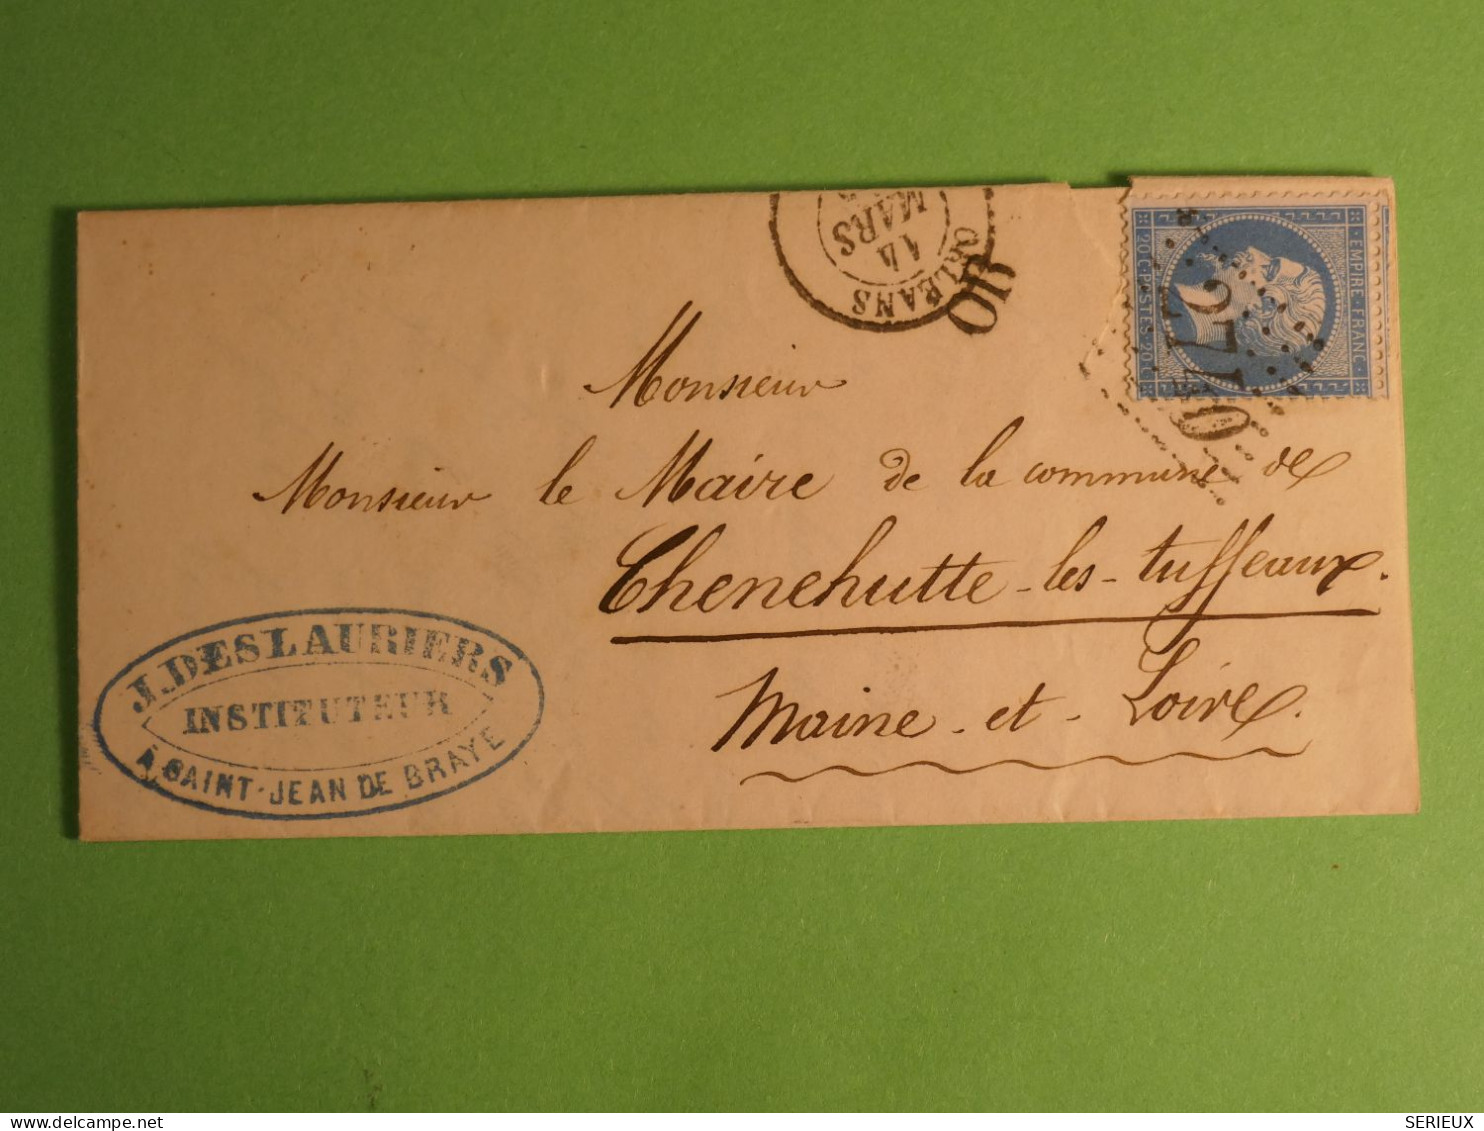 ORLEANS
14
MARS
OR
EMPIRE FRANC
20 C POSTES 20 C
2740
Monsieur
Monsieur le Maire de la commune de
Chenehutte-les-tuffeaux.
Maine-et-Loire.
J. DESLAURIERS
INSTITUTEUR
À SAINT-JEAN DE BRAYE
SERIEUX